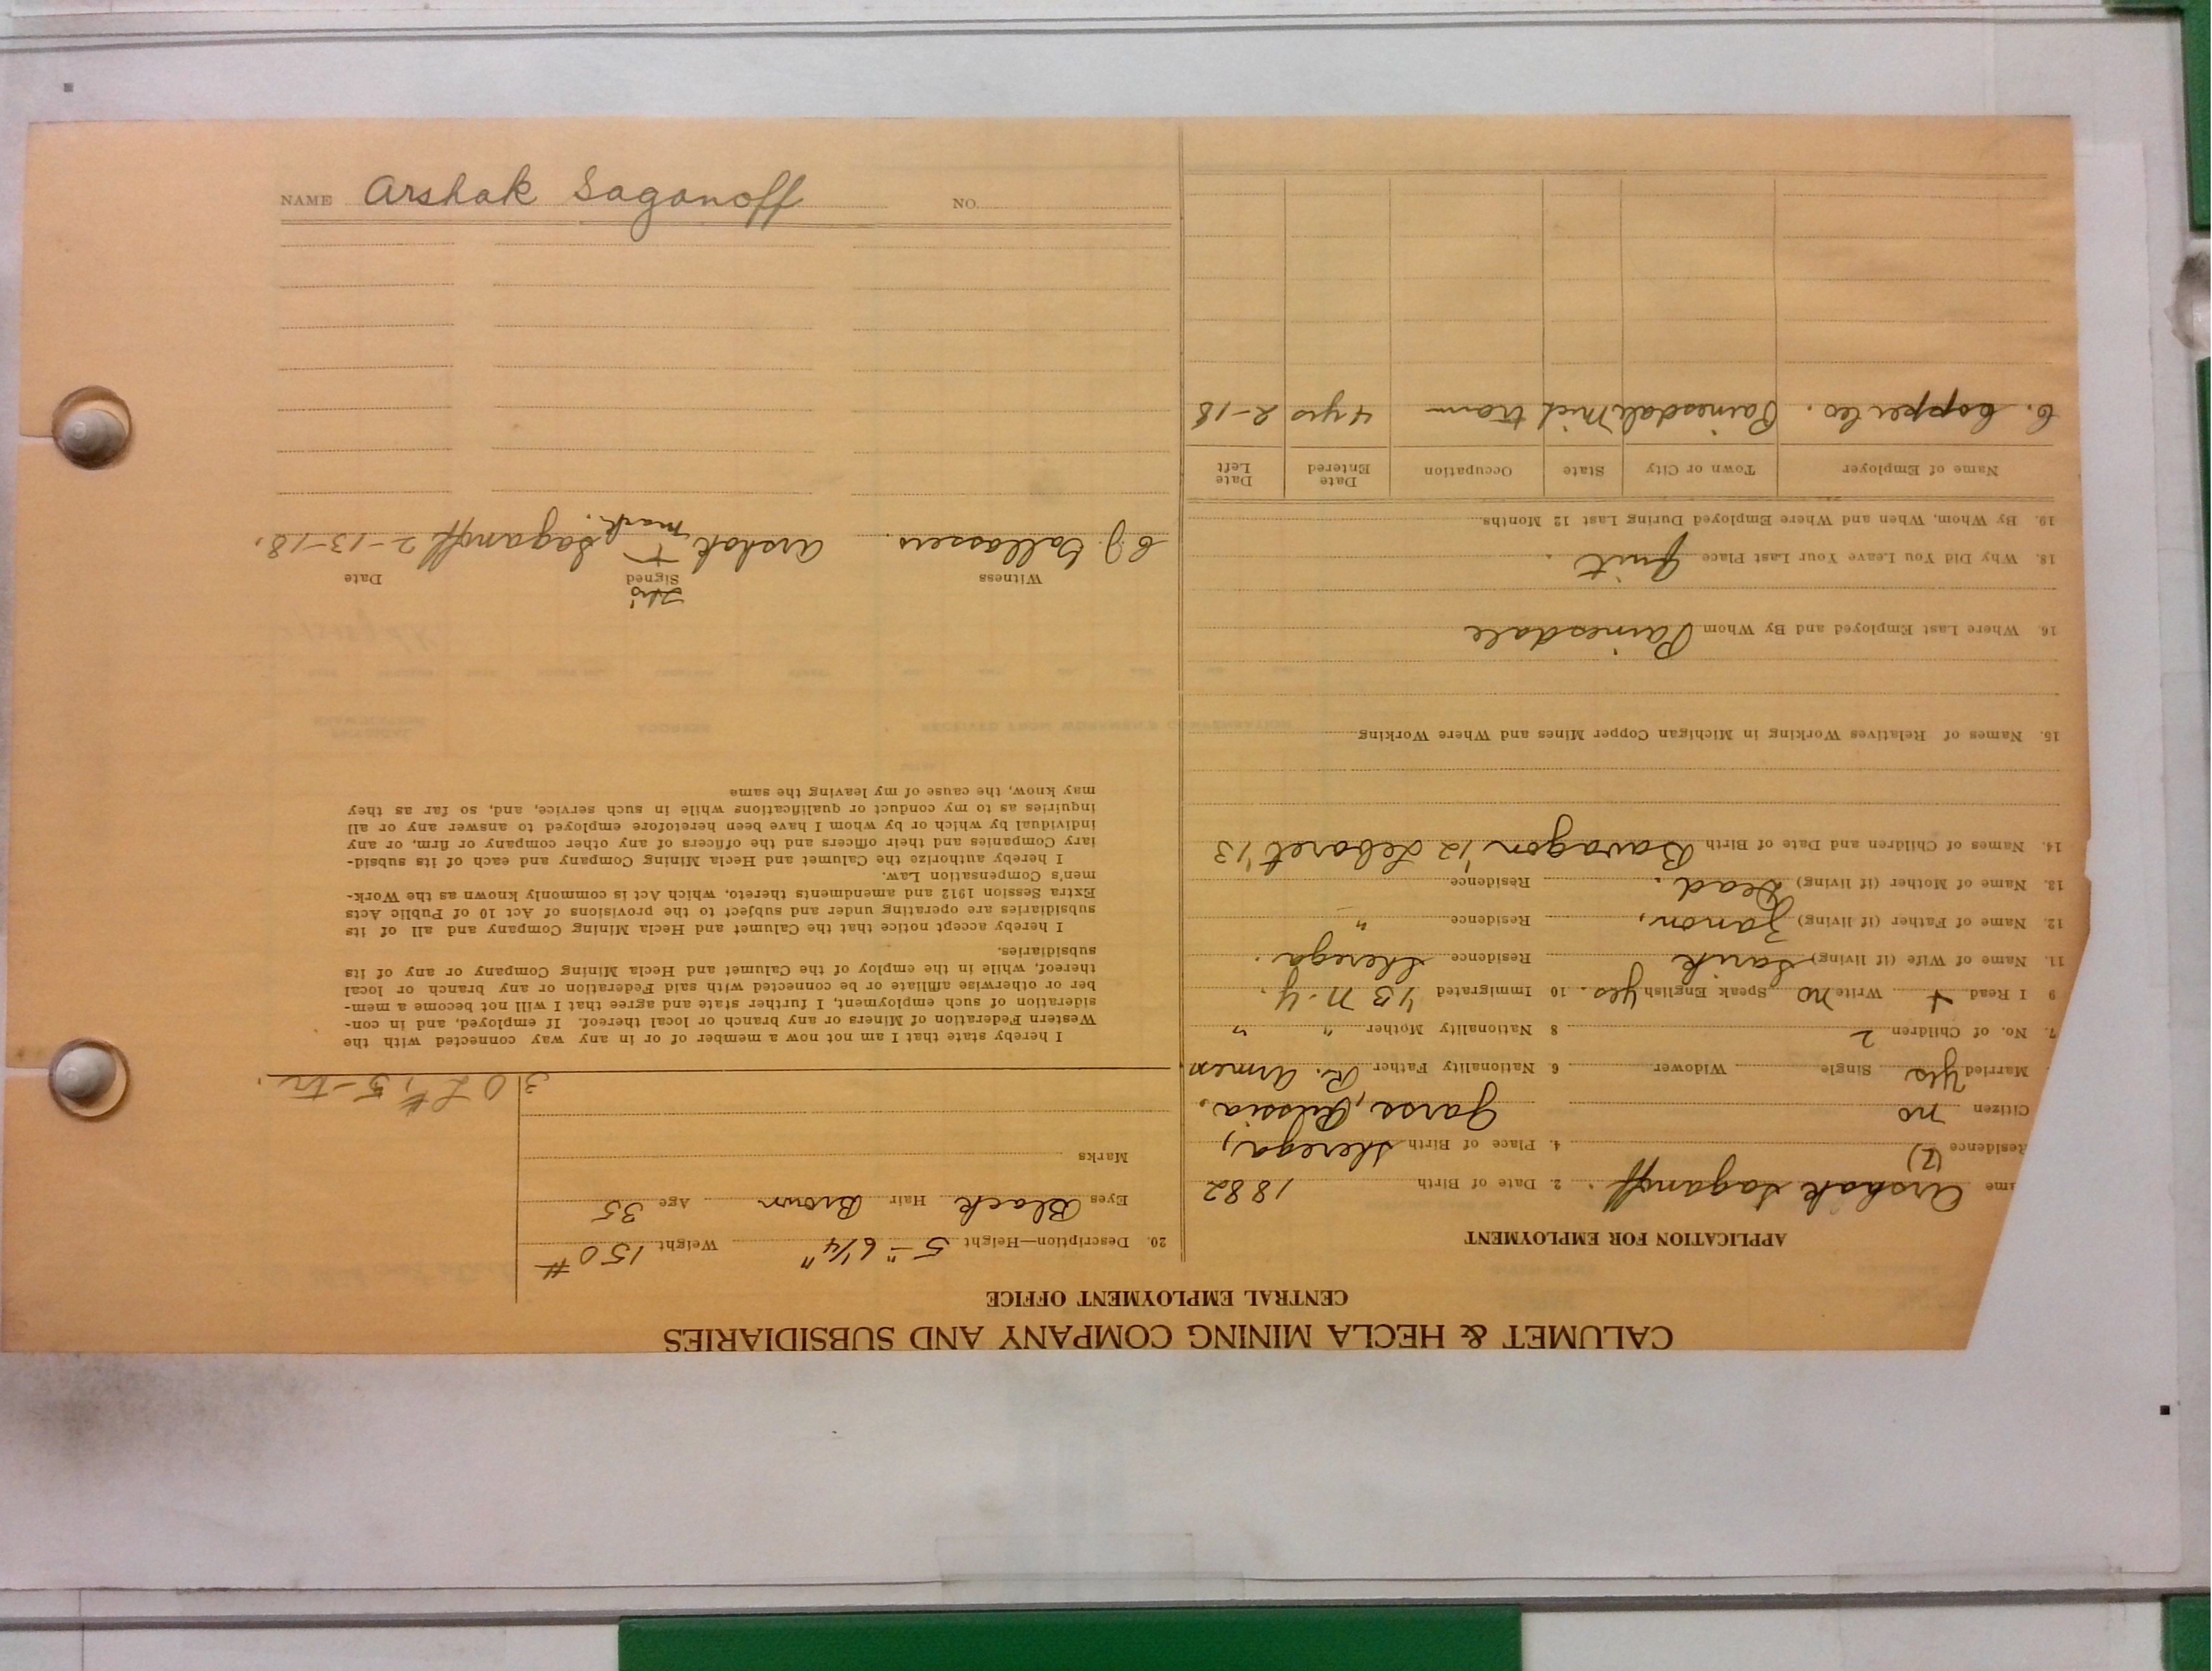 CALUMET & HECLA MINING COMPANY AND SUBSIDIARIES
CENTRAL EMPLOYMENT OFFICE
APPLICATION FOR EMPLOYMENT
ame Arshak Saganoff. 2. Date of Birth 1882
Residence (2) 4. Place of Birth Sherega,
Citizen no Garse, Russia.
Married yes Single Widower 6 Nationality Father R. Armen.
7. No. of Children 2 8 Nationality Mother " "
9 I Read + Write no Speak English yes. 10 Immigrated '13 N.Y.
11. Name of Wife (if living) Sarik Residence Sherega.
12. Name of Father (if living) Zanon, Residence "
13. Name of Mother (if living) Dead. Residence
14. Names of Children and Date of Birth Bavagon '12 Leboret '13
15. Names of Relatives Working in Michigan Copper Mines and Where Working
16. Where Last Employed and By Whom Painesdale
18. Why Did You Leave Your Last Place Quit.
19. By Whom, When and Where Employed During Last 12 Months
Name of Employer Town or City State Occupation Date Entered Date Left
C. Copper Co. Painesdale Mich tram 4 yrs 2-18
20. Description—Height 5-" 6 1/4" Weight 150 #
Eyes Black Hair Brown Age 35
Marks
30 L #5-tr.
I hereby state that I am not now a member of or in any way connected with the
Western Federation of Miners or any branch or local thereof. If employed, and in con-
sideration of such employment, I further state and agree that I will not become a mem-
ber or otherwise affiliate or be connected with said Federation or any branch or local
thereof, while in the employ of the Calumet and Hecla Mining Company or any of its
subsidiaries.
I hereby accept notice that the Calumet and Hecla Mining Company and all of its
subsidiaries are operating under and subject to the provisions of Act 10 of Public Acts
Extra Session 1912 and amendments thereto, which Act is commonly known as the Work-
men's Compensation Law.
I hereby authorize the Calumet and Hecla Mining Company and each of its subsid-
iary Companies and their officers and the officers of any other company or firm, or any
individual by which or by whom I have been heretofore employed to answer any or all
inquiries as to my conduct or qualifications while in such service, and, so far as they
may know, the cause of my leaving the same
Witness Signed Date
His
C.J. Arshak + Saganoff 2-13-18.
mark.
NAME Arshak Saganoff NO.